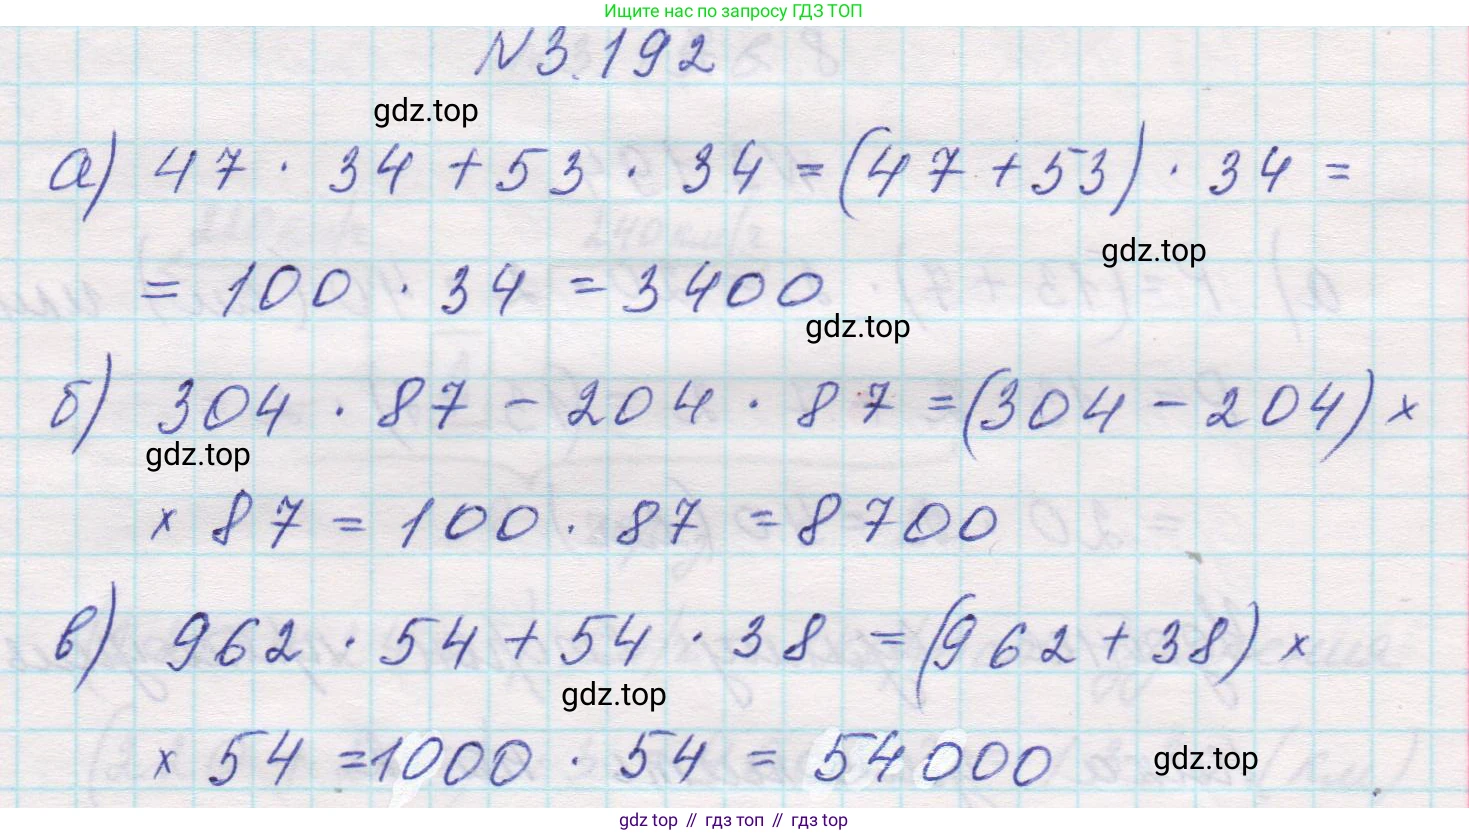 Ищите нас по запросу ГДЗ ТОП
N 3.192
gdz.top
а) 47 · 34 + 53 · 34 = (47 + 53) · 34 =
gdz.top
= 100 · 34 = 3400
gdz.top
б) 304 · 87 - 204 · 87 = (304 - 204) ×
gdz.top
× 87 = 100 · 87 = 8700
в) 962 · 54 + 54 · 38 = (962 + 38) ×
gdz.top
× 54 = 1000 · 54 = 54000
gdz.top
gdz top // гдз топ // gdz top